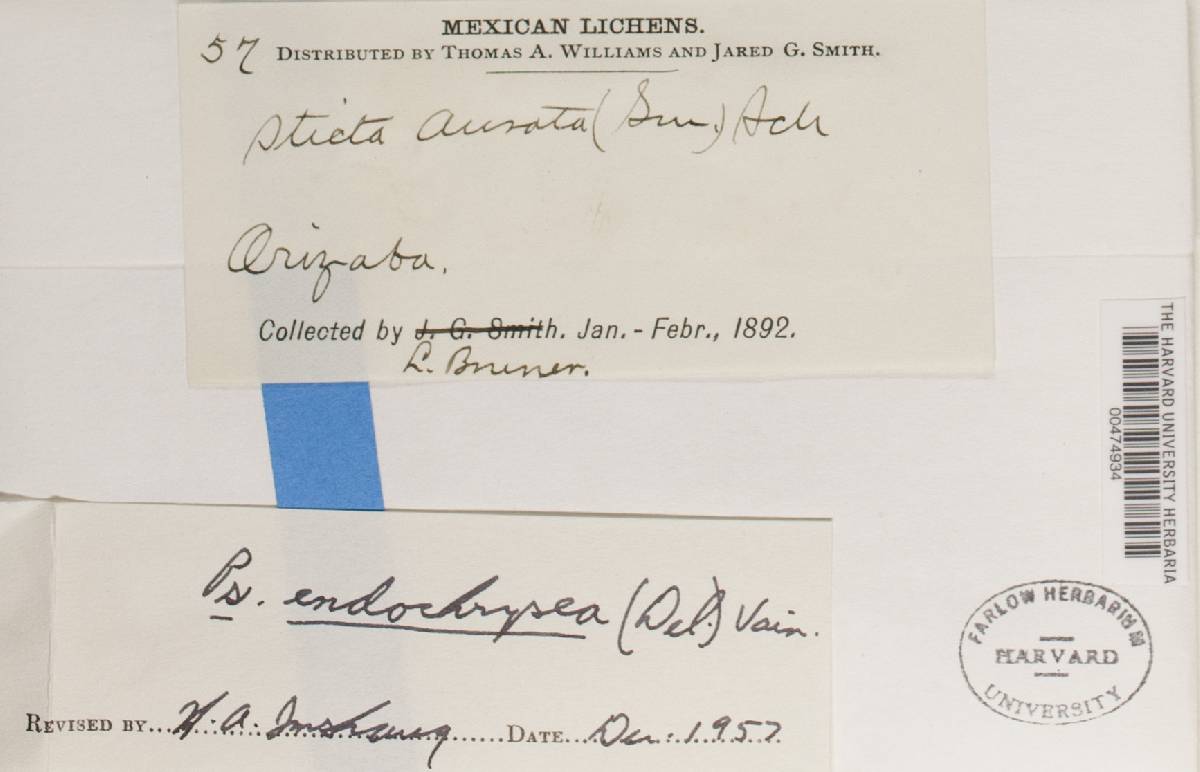 MEXICAN LICHENS.
57 DISTRIBUTED BY THOMAS A. WILLIAMS AND JARED G. SMITH.
Sticta aurata (Sm.) Ach
Orizaba.
Collected by J. G. Smith. Jan. - Febr., 1892.
L. Bruner.
THE HARVARD UNIVERSITY HERBARIA
00474934
Ps. endochrysea (Del.) Vain.
REVISED BY...H. A. Imshaug......DATE...Dec. 1957
FARLOW HERBARIUM
HARVARD
UNIVERSITY